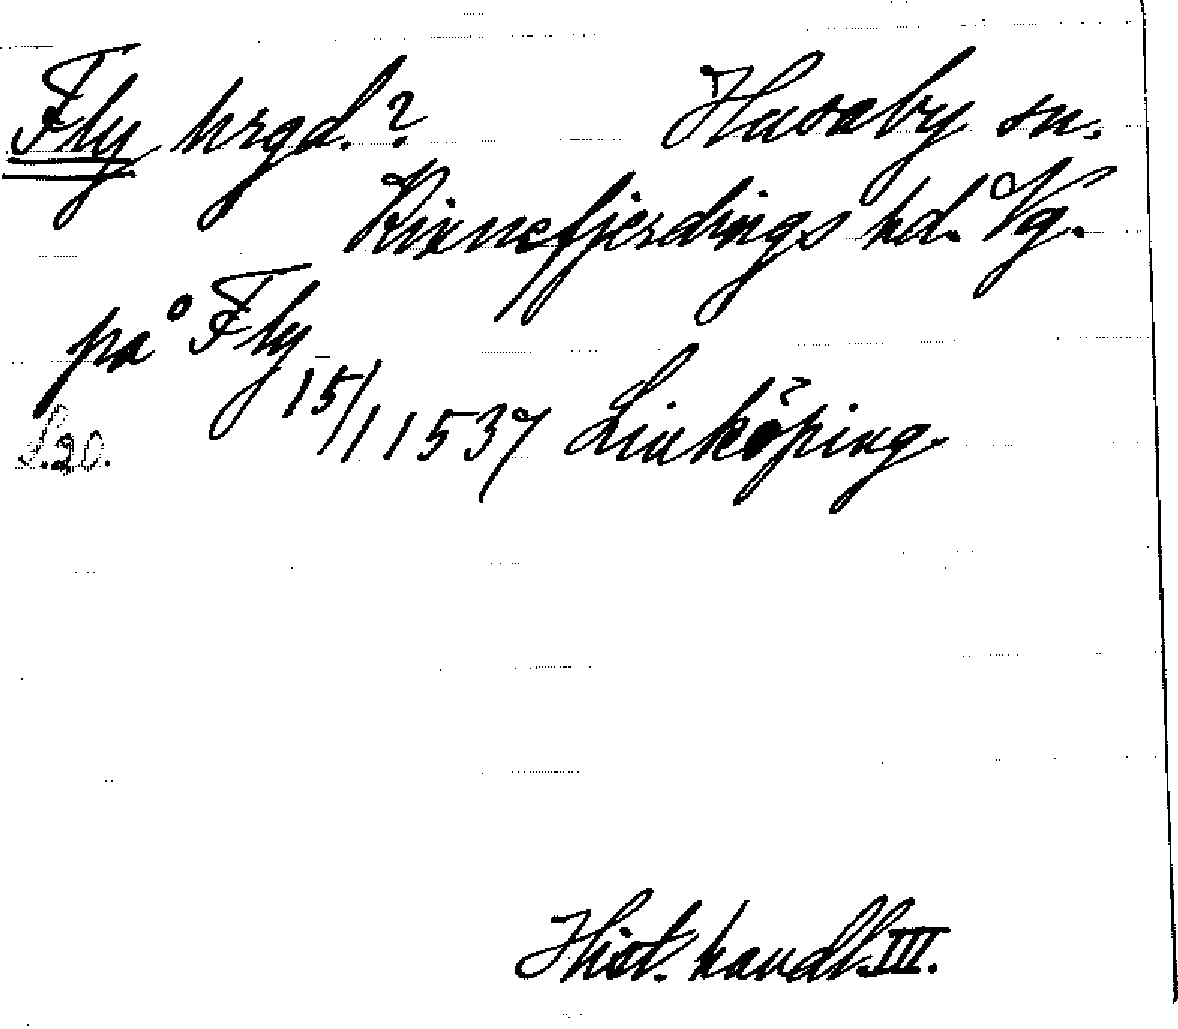 Fly hrgd.? Husaby sn.
Kinnefjerdings hd. Vg.
på Fly
15/11 1537 Linköping
S.20.
Hist. handl. III.